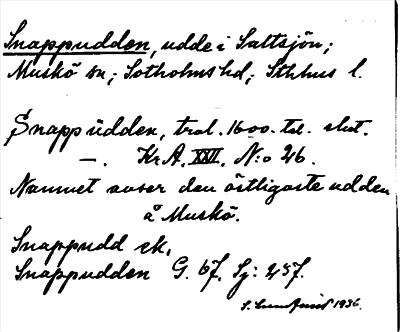 Snappudden, udde i Saltsjön;
Muskö sn; Sotholms hd; Sthlms l.
Snappüdden, trol. 1600-tal. slut.
—. Kr.A. XXII. N:o 26.
Namnet avser den östligaste udden
å Muskö.
Snappudd ek.
Snappudden G. 67. Sj: 257.
S. Lundquist 1936.